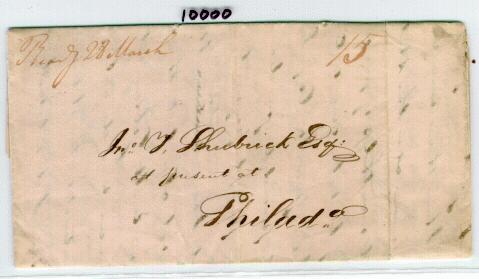 10000
28 March
15
Jno. T. Shubrick Esqr.
at present at
Philada.